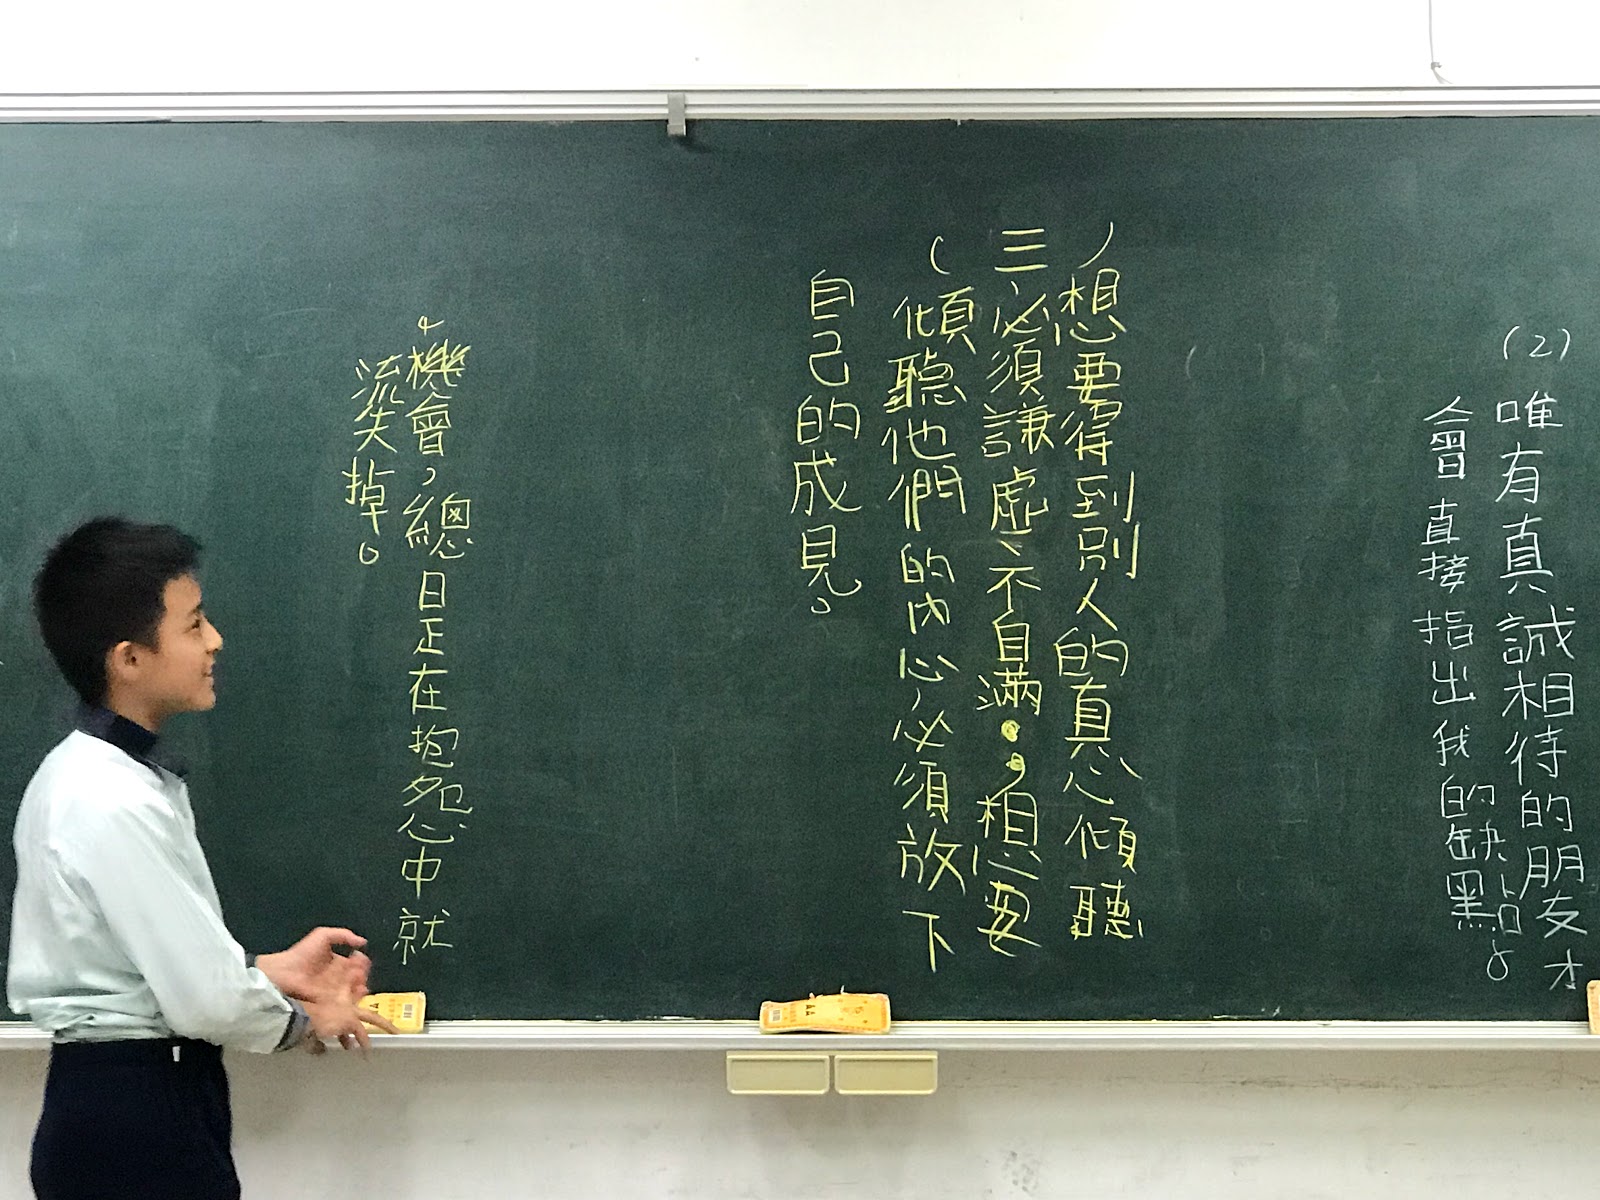 (2)
唯有真誠相待的朋友才
會直接指出我的缺點。
(三)
想要得到別人的真心傾聽
、必須謙虛、不自滿,想要
傾聽他們的內心,必須放下
自己的成見。
4
機會,總日正在抱怨中就
流失掉。